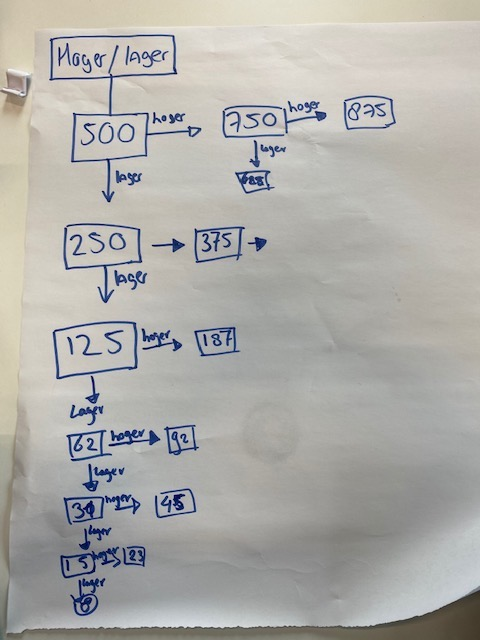 Hoger/lager
500 hoger 750 hoger 875
lager
lager
250 375
lager
125 hoger 187
Lager
62 hoger 92
lager
hoger 45
lager
15 hoger 23
lager
8